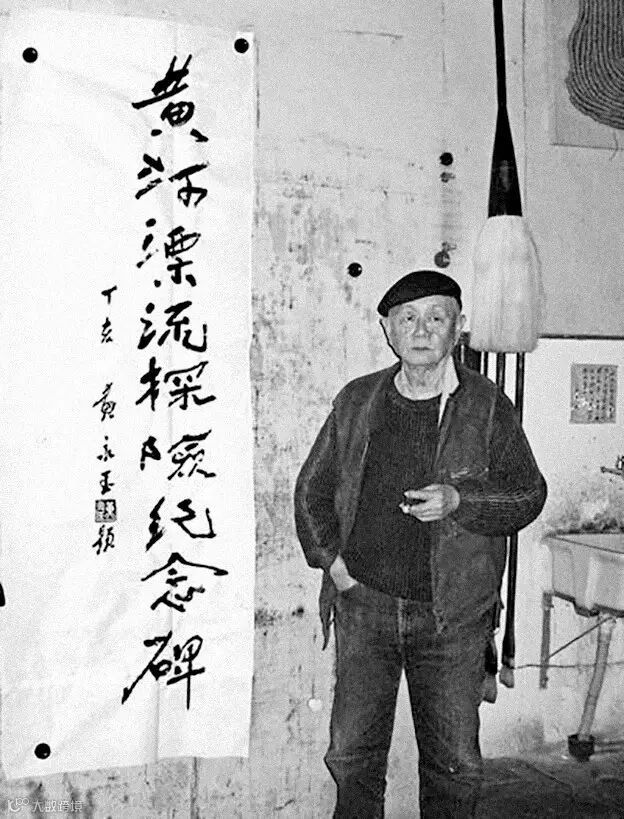 黄河漂流探险纪念碑
丁亥 黄永玉 题
大数跨境